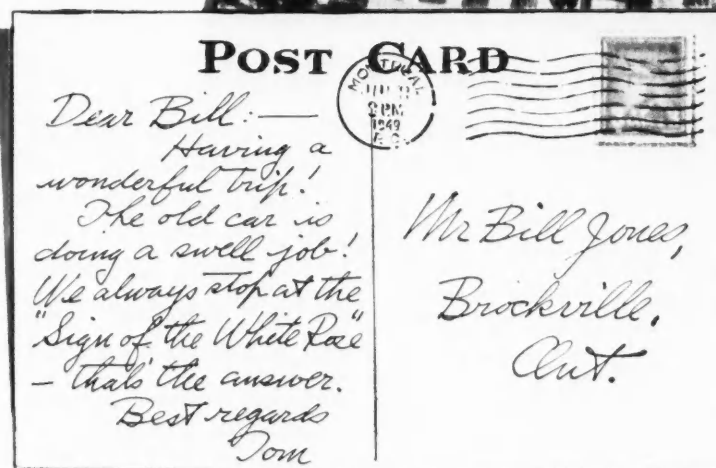 POST CARD
MONTREAL
9 PM
1949
P.Q.
Dear Bill:—
Having a
wonderful trip!
The old car is
doing a swell job!
We always stop at the
"Sign of the White Rose"
— that's the answer.
Best regards
Tom
Mr Bill Jones,
Brockville,
Ont.